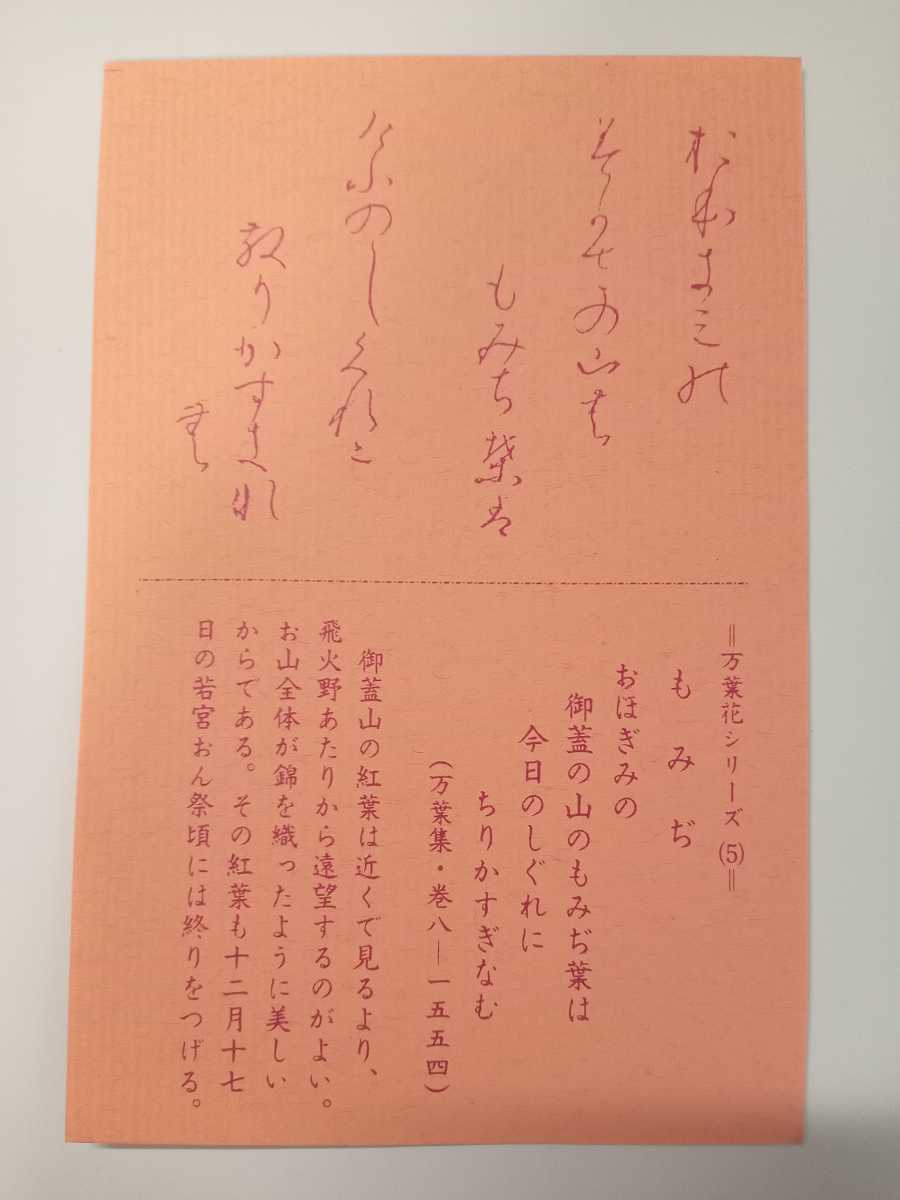 おほきミの
みかさの山の
もみち葉は
けふのしくれに
散りかすきな
む
＝万葉花シリーズ(5)＝
もみぢ
おほぎみの
御蓋の山のもみぢ葉は
今日のしぐれに
ちりかすぎなむ
(万葉集・巻八―一五五四)
御蓋山の紅葉は近くで見るより、
飛火野あたりから遠望するのがよい。
お山全体が錦を織ったように美しい
からである。その紅葉も十二月十七
日の若宮おん祭頃には終りをつげる。